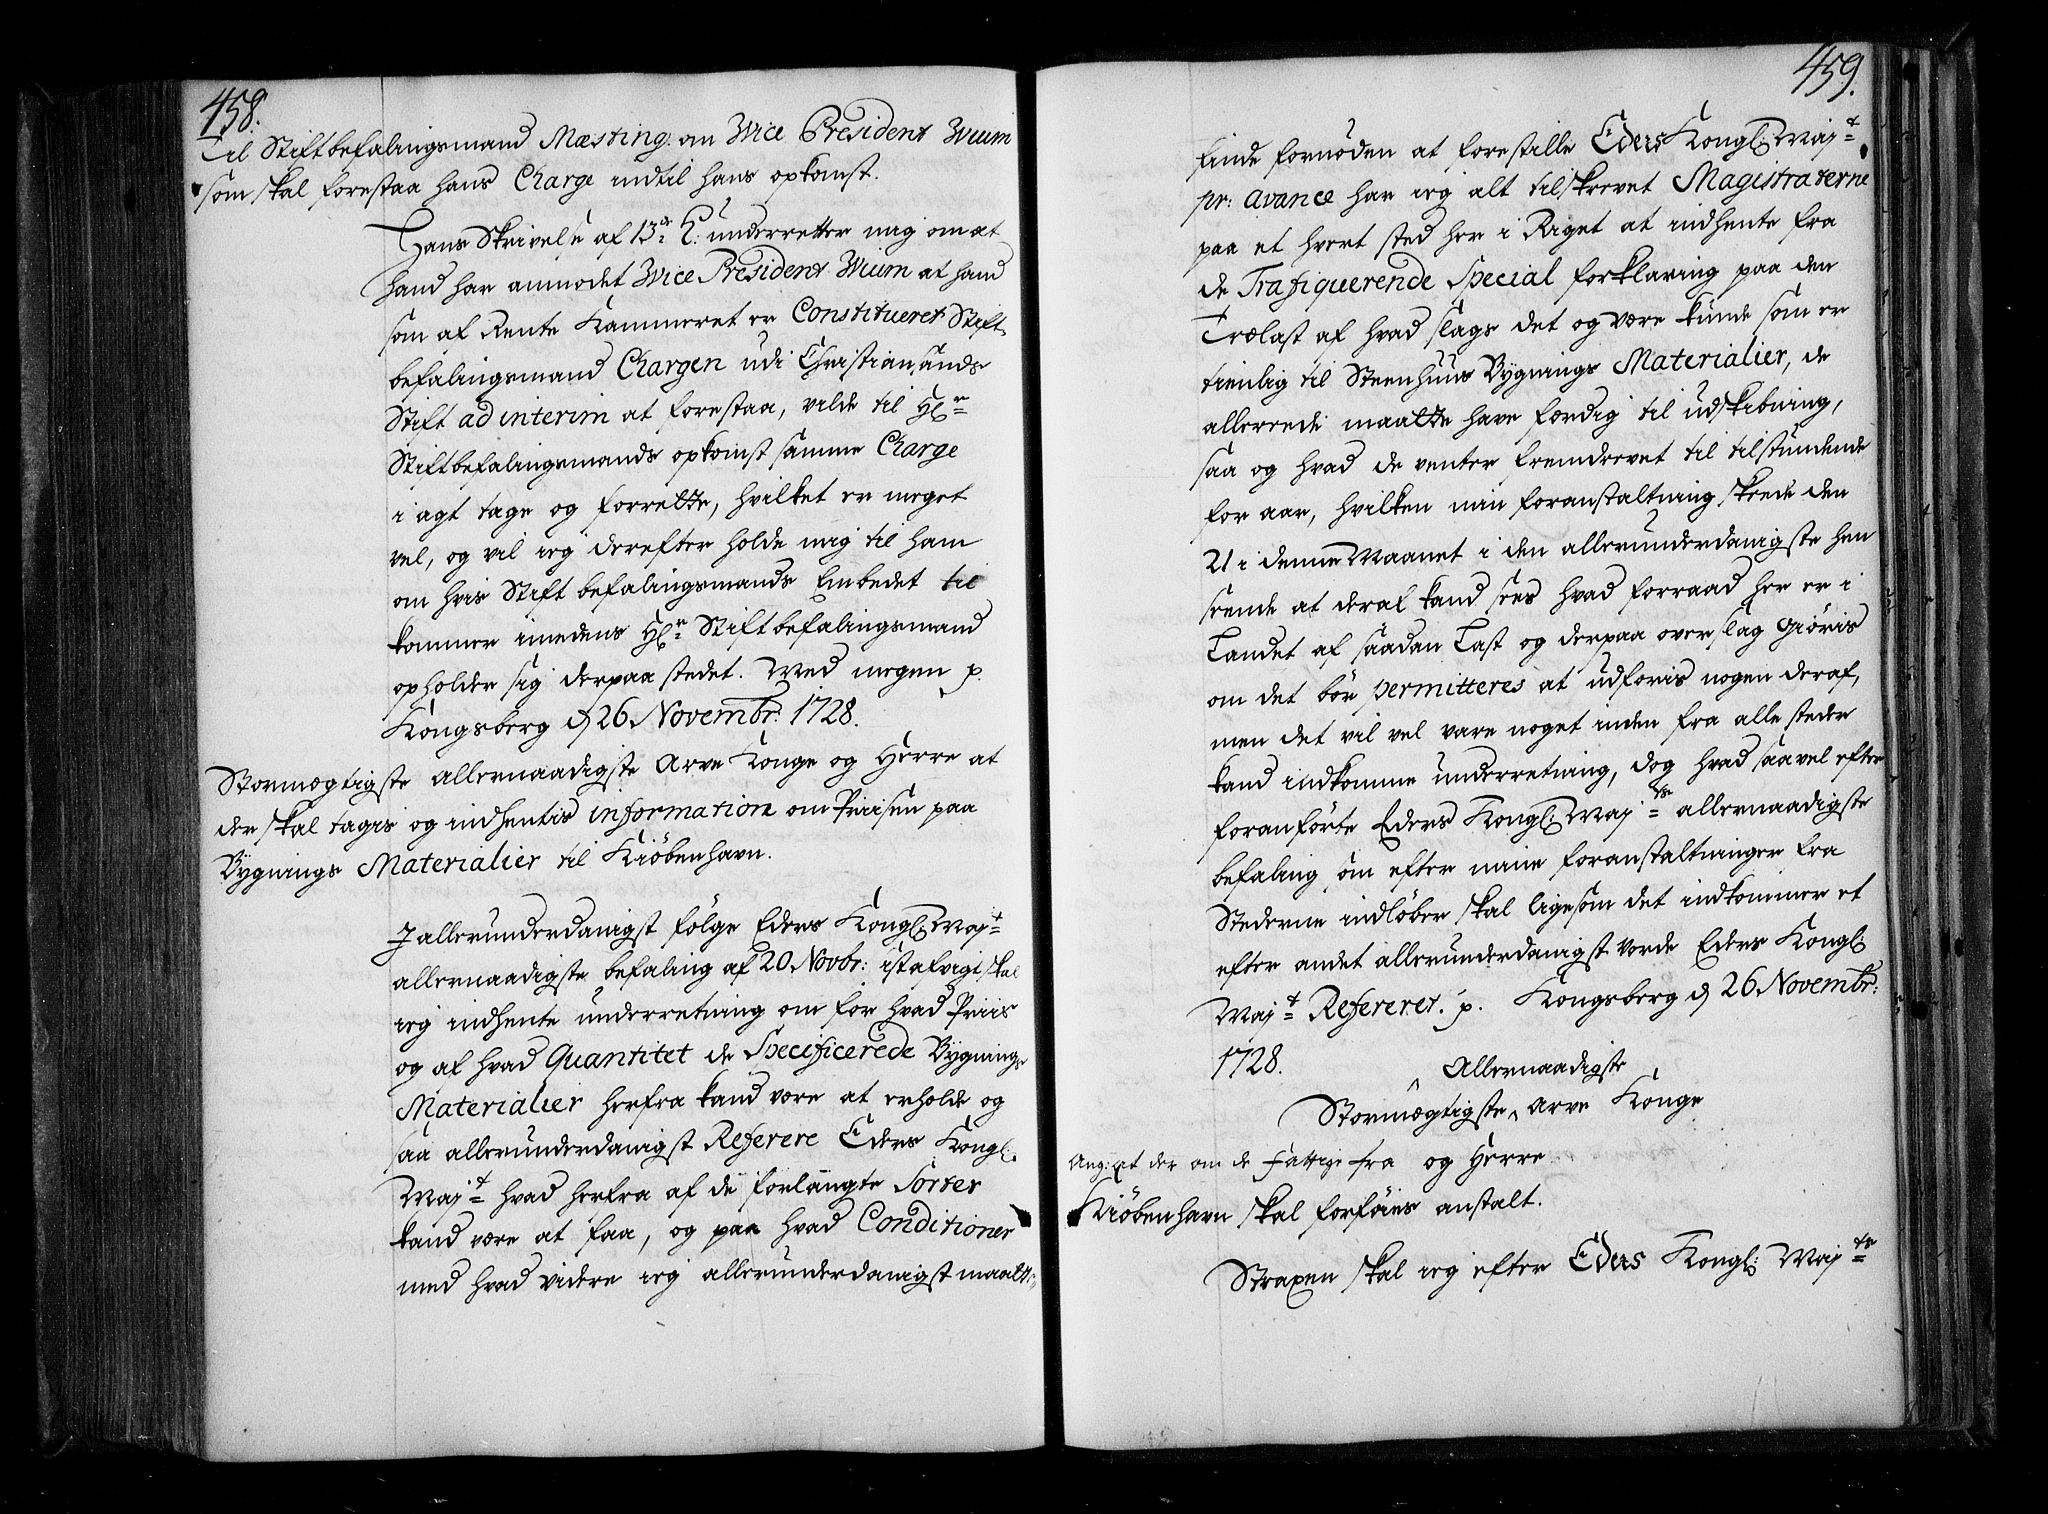 458.
Til Stiftbefalingsmand Mæsting: om Wice President Wium
som skal forestaa hans Charge indtil hans opkomst.
Hans Skrivelse af 13de h: underretter mig om at
hand har anmodet Wice President Wium at hand
som af Rente Kammeret er Constitueret Stift-
befalingsmand Chargen udi Christiansands
Stift ad interim at forestaa, vilde til Hr
Stiftbefalingsmands opkomst samme Charge
i agt tage og forrette, hvilket er meget
vel, og vil ieg derefter holde mig til ham
om hvis Stiftbefalingsmands Embedet til
kommer imedens Hr Stiftbefalingsmand
opholder sig derpaa stedet. Med megen p.
Kongsberg d 26 Novembr: 1728.
Stormægtigste Allernaadigste Arve Konge og Herre at
der skal tages og indhentis information om Priisen paa
Bygnings Materialier til Kiøbenhavn.
J allerunderdanigst følge Eders Kongl: Mayt
allernaadigste befaling af 20 Novbr: istafvigt skal
ieg indhente underretning om for hvad Priis
og af hvad Quantitet de Specificerede Bygnings
Materialier herfra kand være at erholde og
saa allerunderdanigst Referere Eders Kongl:
Mayt hvad herfra af de forlangte Sorter
kand være at faa, og paa hvad Conditioner
med hvad videre ieg allerunderdanigst maatte
459.
finde fornøden at forestille Eders Kongl: Mayt
pr: avance har ieg alt tilskrevet Magistraterne
paa et hvert sted her i Riget at indhente fra
de Trafiquerende Special forklaring paa den
Trælast af hvad slags det og være kunde som er
tienlig til Steenhuus Bygnings Materialier, de
allerede maatte have færdig til udskibning,
saa og hvad de venter fremdrevet til tilstundende
for aar, hvilken min foranstaltning skeede den
21 i denne Maanet i den allerunderdanigste hen
seende at deraf kand sees hvad forraad her er i
Landet af saadan Last og derpaa overslag giøris
om det bør permitteres at udføris nogen deraf,
men det vil vel vare noget inden fra alle steder
kand indkomme underretning, dog hvad saavel efter
foranførte Eders Kongl: Mayts allernaadigste
befaling som efter mine foranstaltninger fra
Stederne indløber skal ligesom det indkommer et
efter andet allerunderdanigst vorde Eders Kongl:
Mayt Refereret. p. Kongsberg d 26 Novembr:
1728.
Allernaadigste
Stormægtigste ^ Arve Konge
og Herre
Ang: at der om de Fattige fra
Kiøbenhavn skal forføies anstalt.
Straxen skal ieg efter Eders Kongl: Mayts